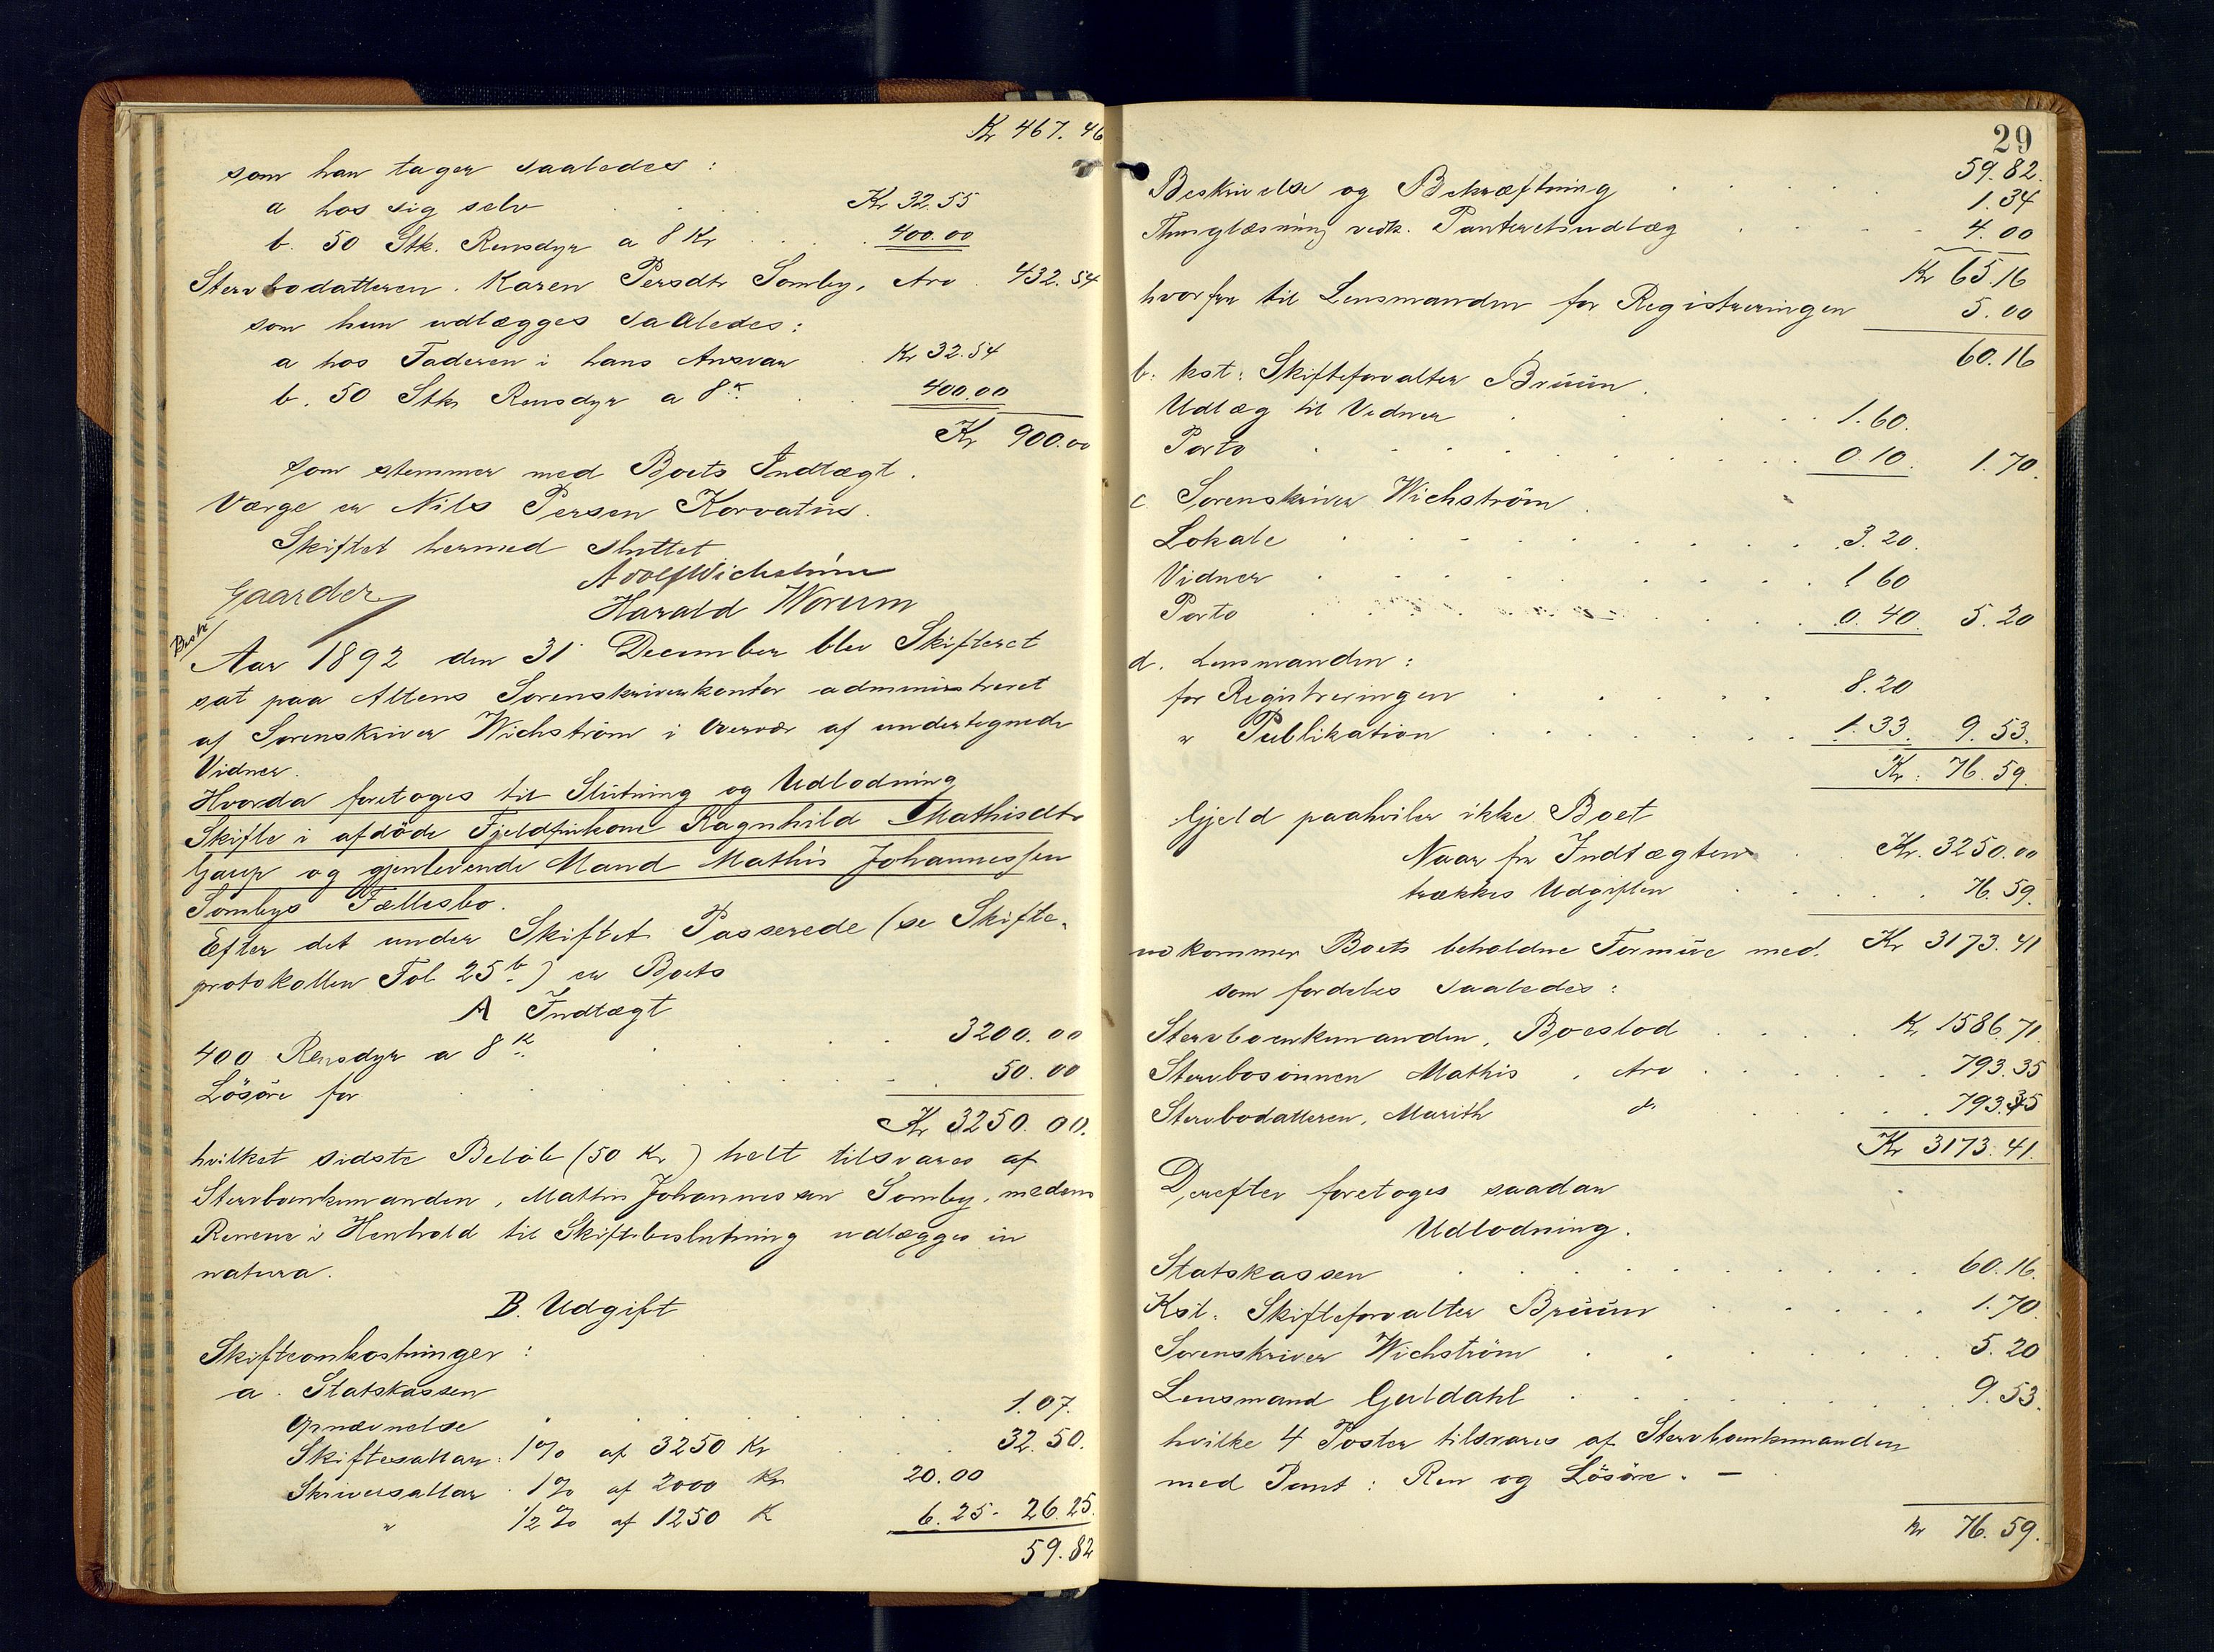 Kr 467.46
som han tager saaledes:
a hos sig selv Kr 32.55
b. 50 Stk. Rensdyr a 8 Kr 400.00
Stervbodatteren. Karen Persdtr Somby, Arv 432.54
som hun udlægges saaledes:
a hos Faderen i hans Ansvar Kr 32.54
b. 50 Stkr Rensdyr a 8 K 400.00
Kr 900.00
som stemmer med Boets Indtægt.
Værge er Nils Persen Korvatus.
Skiftet hermed sluttet
Adolf Wichström
Gaarder Harald Worum
Besk/
Aar 1892 den 31 December blev Skifteret
sat paa Altens Sorenskriverkontor administreret
af Sorenskriver Wichström i Overvær af undertegnede
Vidner.
Hvorda foretoges til Slutning og Udlodning
Skifte i afdöde Fjeldfinkone Ragnhild Mathisdtr
Gaup og gjenlevende Mand Mathis Johannessen
Sombys Fællesbo.
Efter det under Skiftet Passerede (se Skifte-
protokollen Fol 25 b) er Boets
A Indtægt
400 Rensdyr a 8 K 3200.00
Lösöre for 50.00
Kr 3250.00.
hvilket sidste Belöb (50 Kr) helt tilsvares af
Stervboenkemanden, Mathis Johannessen Somby, medens
Renene i Henhold til Skiftebeslutning udlægges in
natura.
B. Udgift
Skifteomkostninger:
a. Statskassen
Opnævnelse 1.07.
Skiftesallar. 1% af 3250 Kr 32.50.
Skriversallar. 1% af 2000 Kr 20.00
" 1/2% af 1250 K 6.25. 26.25.
59.82
29
59.82.
Beskrivelse og Bekræftning 1.34
Thinglæsning vedk. Panteretsudlæg 4.00
Kr 65.16
hvorfra til Lensmanden for Registreringen 5.00
60.16
b. kst: Skifteforvalter Bruun.
Udlæg til Vidner 1.60.
Porto 0.10. 1.70.
c Sorenskriver Wichström.
Lokale 3.20.
Vidner 1.60
Porto 0.40. 5.20
d. Lensmanden:
for Registreringen 8.20
" Publikation 1.33. 9.53.
Kr. 76.59.
Gjeld paahviler ikke Boet
Naar fra Indtægten Kr. 3250.00
trækkes Udgiften 76.59.
udkommer Boets beholdne Formue med. Kr 3173.41
som fordeles saaledes:
Stervboenkemanden, Boeslod Kr 1586.71.
Stervbosönnen Mathis, Arv 793.35
Stervbodatteren, Marith do 793.35
Kr 3173.41.
Derefter foretoges saadan
Udlodning.
Statskassen 60.16.
Kst. Skifteforvalter Bruun 1.70.
Sorenskriver Wichström 5.20
Lensmand Guldahl 9.53.
hvilke 4 Poster tilsvares af Stervboenkemanden
med Pant: Ren og Lösöre. —
Kr 76.59.